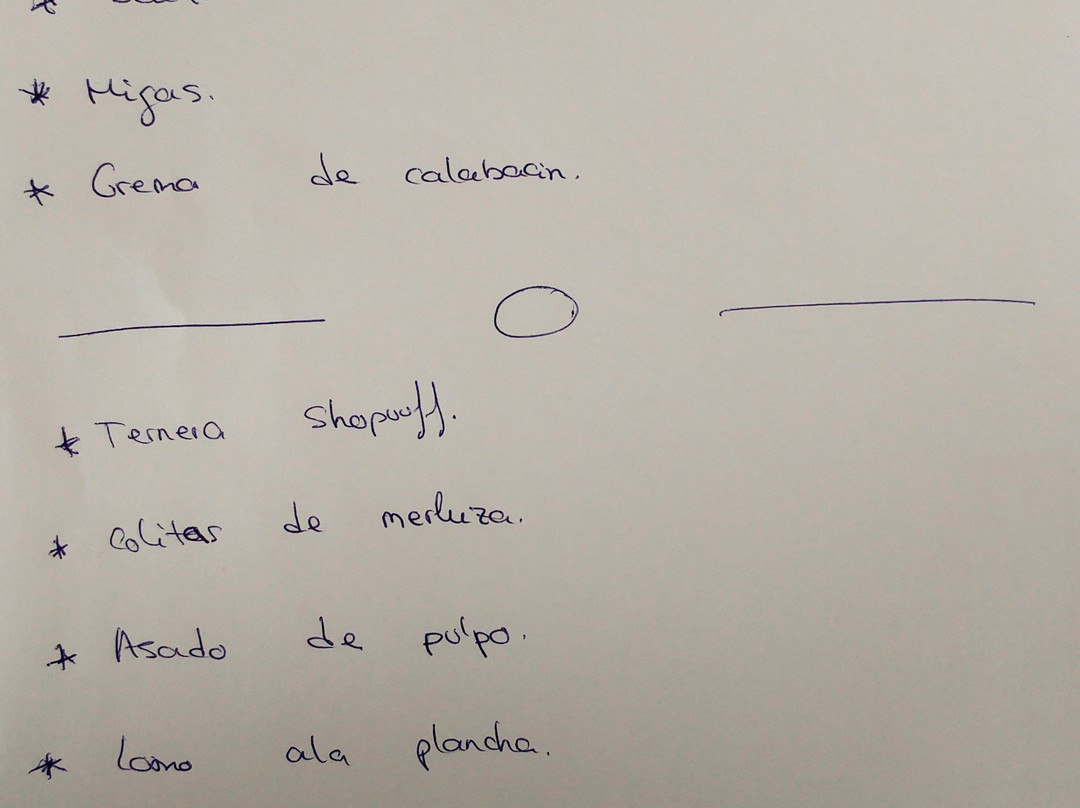 * Migas.
* Crema de calabacin.
* Ternera Shopuoff.
* Colitas de merluza.
* Asado de pulpo.
* Lomo ala plancha.